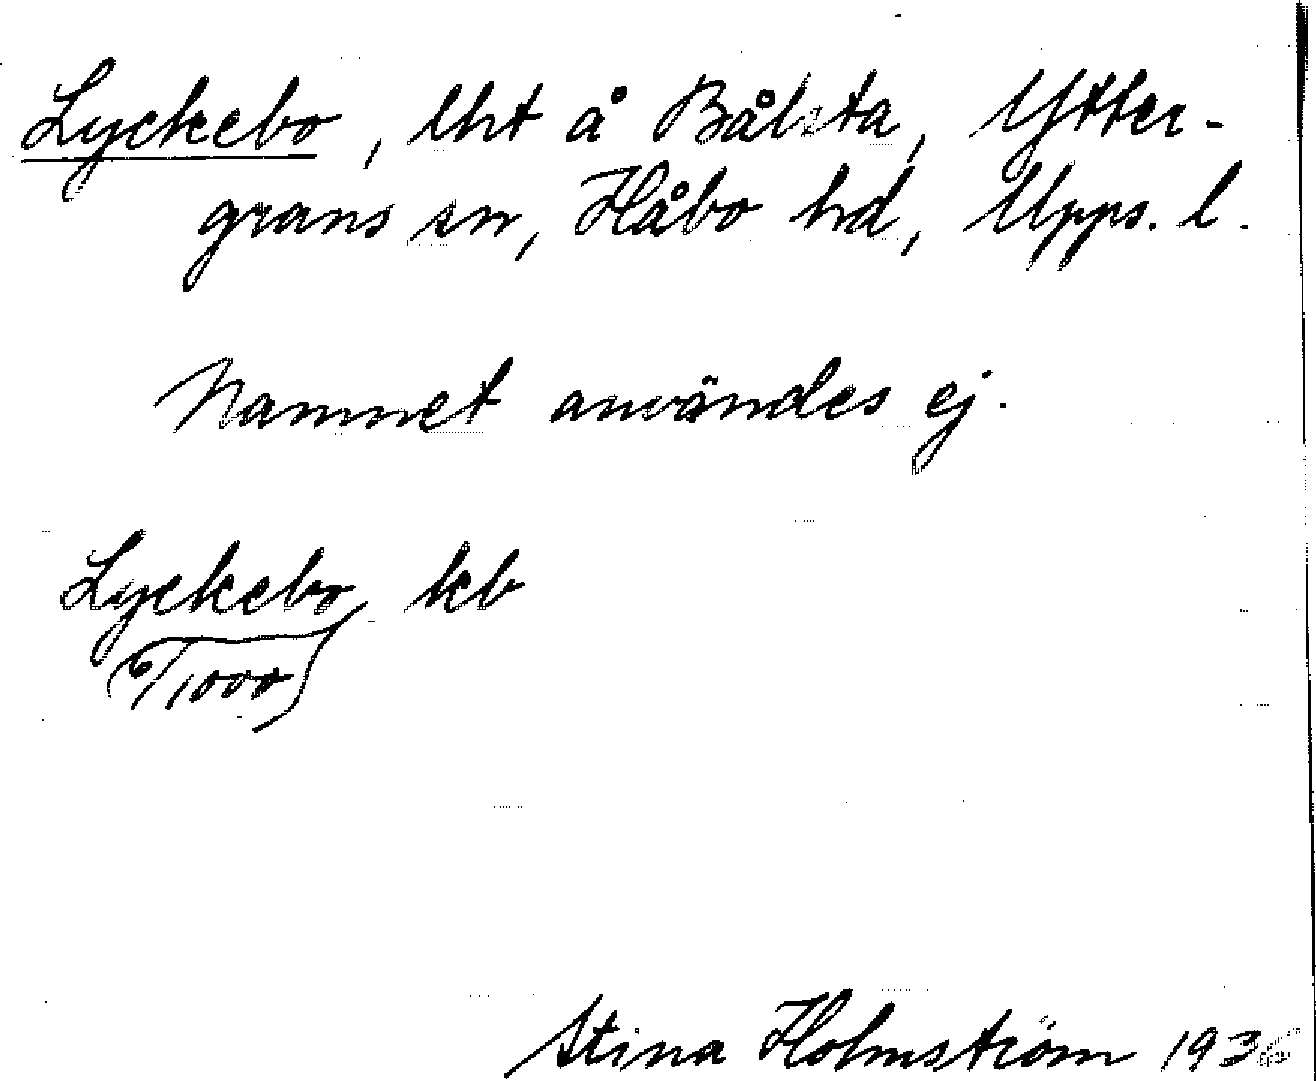 Lyckebo, lht å Bålsta, Ytter-
grans sn, Håbo hd, Upps. l.
Namnet användes ej.
Lyckebo kb
6/1000
Stina Holmström 1936